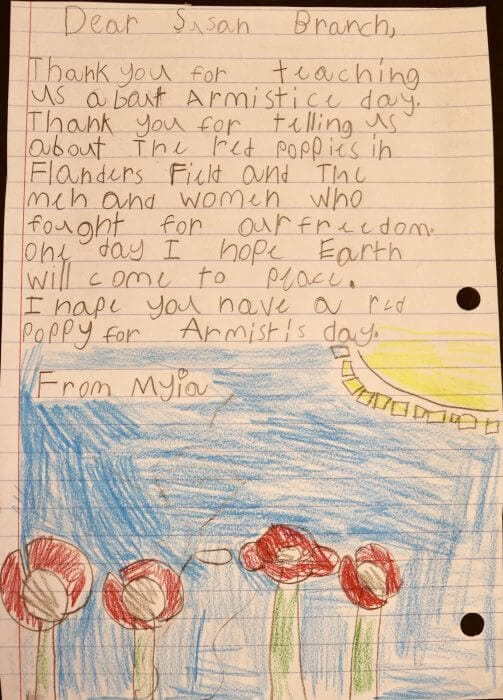 Dear Susan Branch,
Thank you for teaching
us about Armistice day.
Thank you for telling us
about The red poppies in
Flanders Field and The
men and women who
fought for our freedom.
one day I hope Earth
will come to peace.
I hape you have a red
poppy for Armistis day.
From Myia